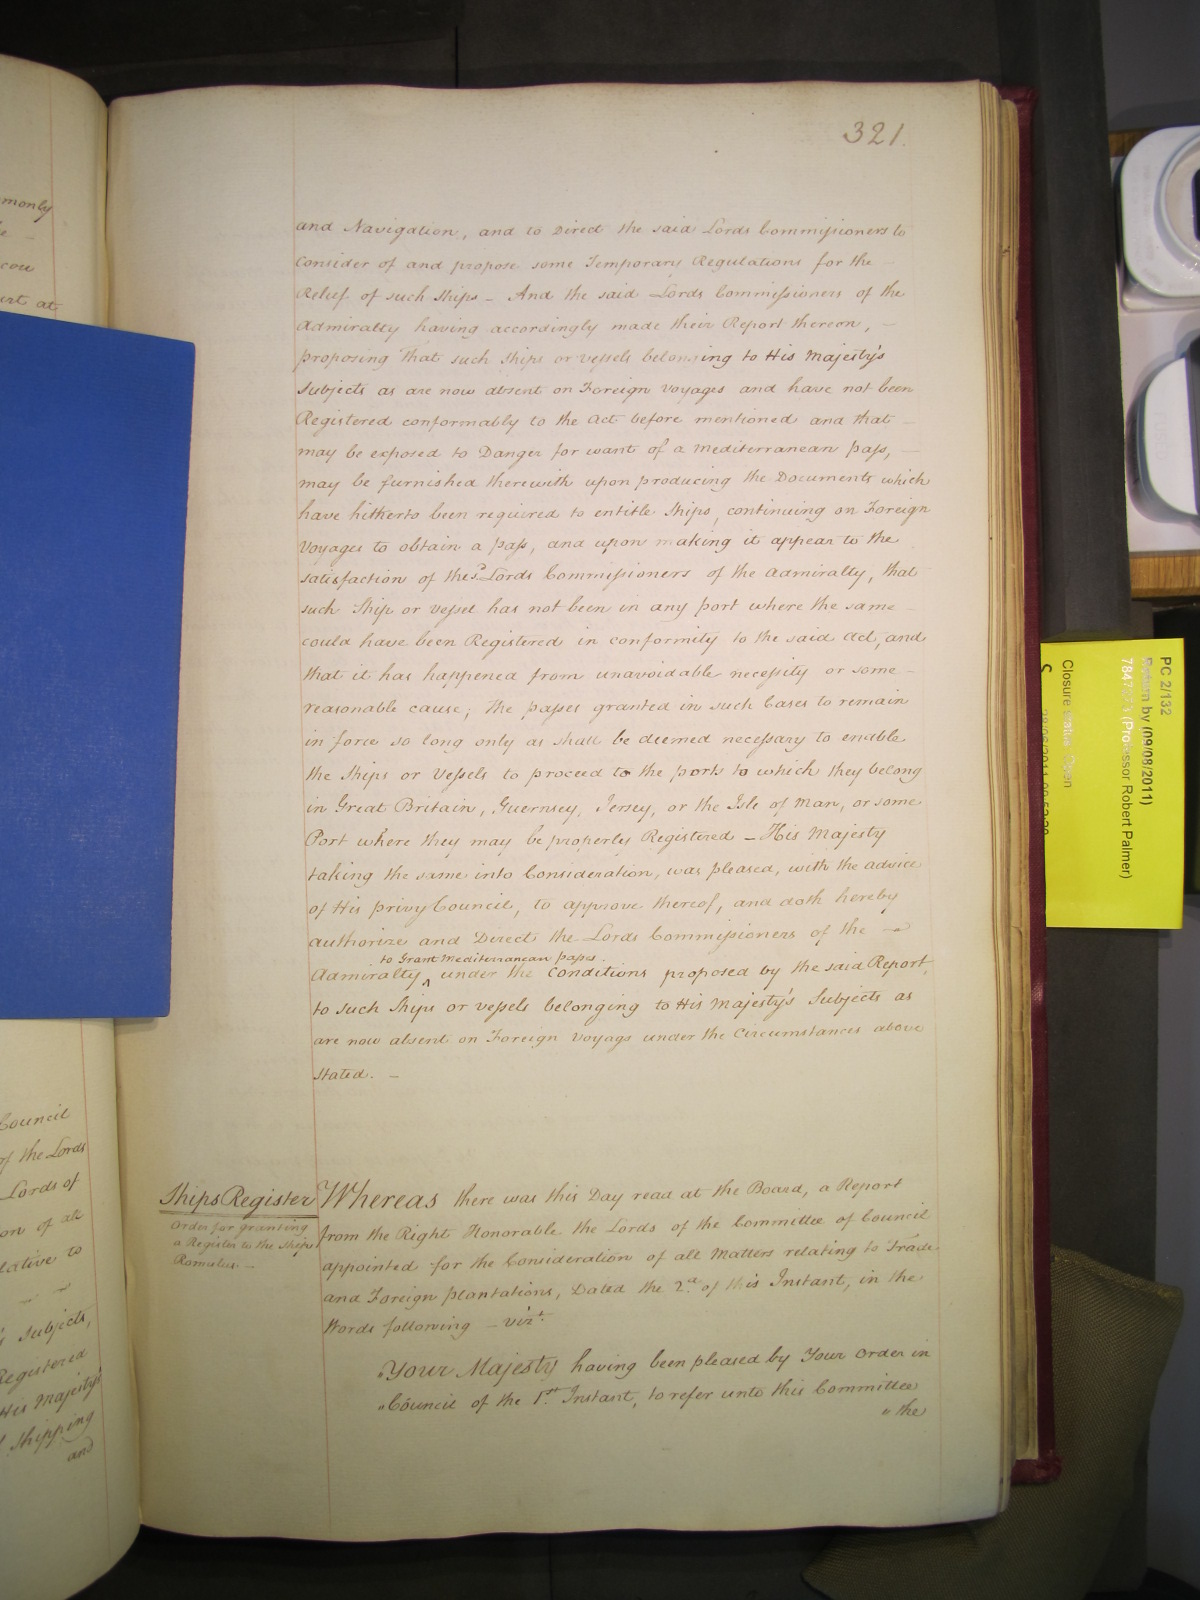 321.
and Navigation, and to Direct the said Lords Commissioners to
Consider of and propose some Temporary Regulations for the –
Relief of such Ships – And the said Lords Commissioners of the
Admiralty having accordingly made their Report thereon, –
proposing That such Ships or vessels belonging to His Majesty's
Subjects as are now absent on Foreign Voyages and have not been
Registered conformably to the Act before mentioned and that –
may be exposed to Danger for want of a Mediterranean Pass, –
may be furnished therewith upon producing the Documents which
have hitherto been required to entitle Ships, continuing on Foreign
Voyages to obtain a pass, and upon making it appear to the
satisfaction of the sd. Lords Commissioners of the Admiralty, that
such Ship or vessel has not been in any port where the same –
could have been Registered in conformity to the said Act, and
that it has happened from unavoidable necessity or some –
reasonable cause; The passes granted in such Cases to remain
in force so long only as shall be deemed necessary to enable
the Ships or Vessels to proceed to the ports to which they belong
in Great Britain, Guernsey, Jersey, or the Isle of Man, or some
Port where they may be properly Registered – His Majesty
taking the same into Consideration, was pleased, with the advice
of His Privy Council, to approve thereof, and doth hereby
authorize and Direct the Lords Commissioners of the –
to Grant Mediterranean passes
Admiralty ^ under the Conditions proposed by the said Report,
to such Ships or vessels belonging to His Majesty's Subjects as
are now absent on Foreign Voyags under the Circumstances above
stated. –
Ships Register
Order for granting
a Register to the Ship
Romulus –
Whereas there was this Day read at the Board, a Report
from the Right Honorable the Lords of the Committee of Council
appointed for the Consideration of all Matters relating to Trade
and Foreign plantations, Dated the 2d. of this Instant, in the
Words following – vizt.
"Your Majesty having been pleased by Your Order in
"Council of the 1st. Instant, to refer unto this Committee
"the
monly
cou
urt at
Council
of the Lords
Lords of
on of all
lative to
Subjects,
Registered
His Majesty's
Shipping
and
PC 2/132
Return by (09/08/2011)
(Professor Robert Palmer)
Closure status: Open